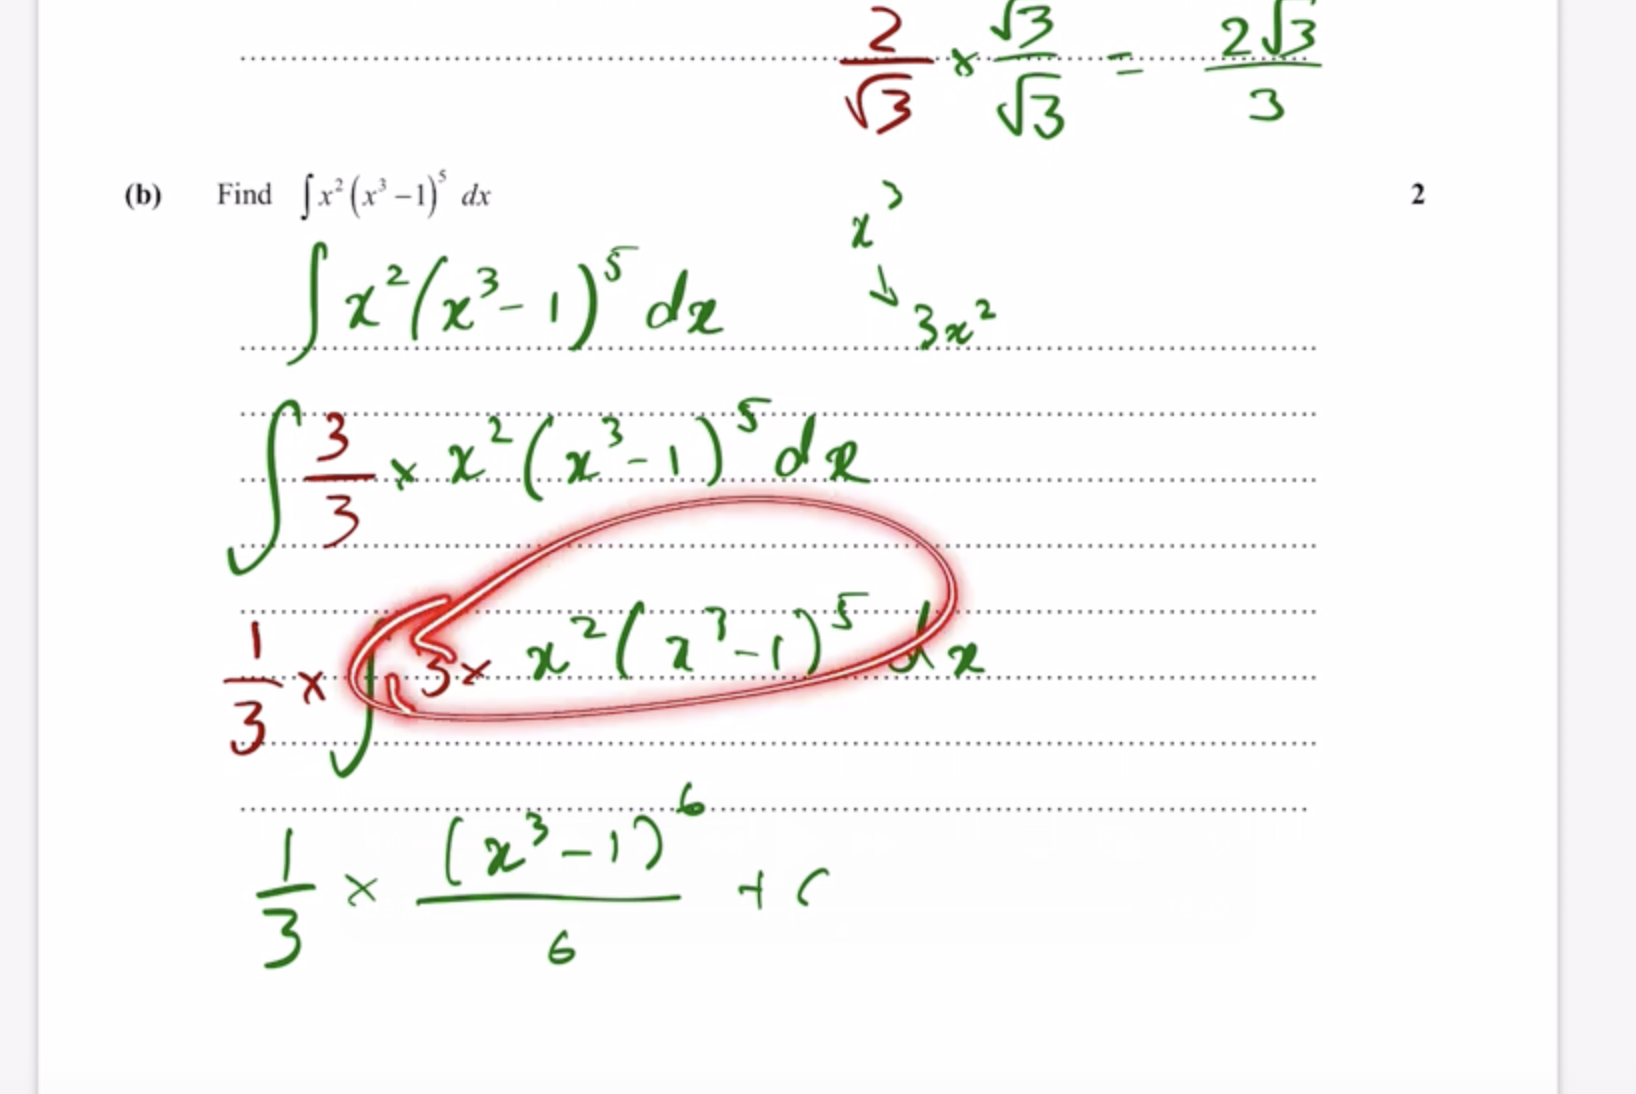 2/√3 × √3/√3 = 2√3/3
(b) Find ∫x²(x³ − 1)⁵ dx 2
x³
↓
3x²
∫x²(x³ − 1)⁵ dx
∫ 3/3 × x²(x³ − 1)⁵ dx
1/3 × ∫ 3 × x²(x³ − 1)⁵ dx
1/3 × (x³ − 1)⁶/6 + C